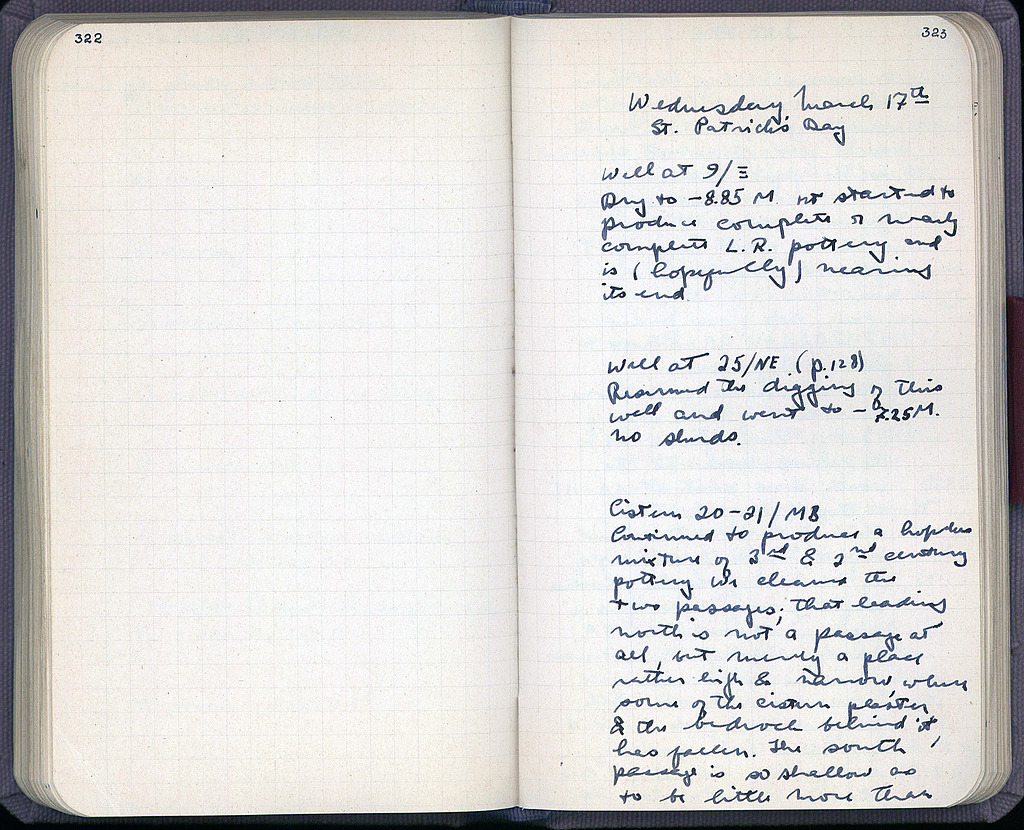 322
323
Wednesday March 17th
St. Patrick's Day
Well at 9/Ξ
Dug to -8.85 M. It started to
produce complete or nearly
complete L.R. pottery and
is (hopefully) nearing
its end.
Well at 25/NE (p.128)
Resumed the digging of this
well and went to -7.25 M.
No sherds.
Cistern 20-21/MB
Continued to produce a hopeless
mixture of 3rd & 2nd century
pottery. We cleaned the
two passages; that leading
north is not a passage at
all, but merely a place
rather high & narrow, where
some of the cistern plaster
& the bedrock behind it
has fallen. The south
passage is so shallow as
to be little more than